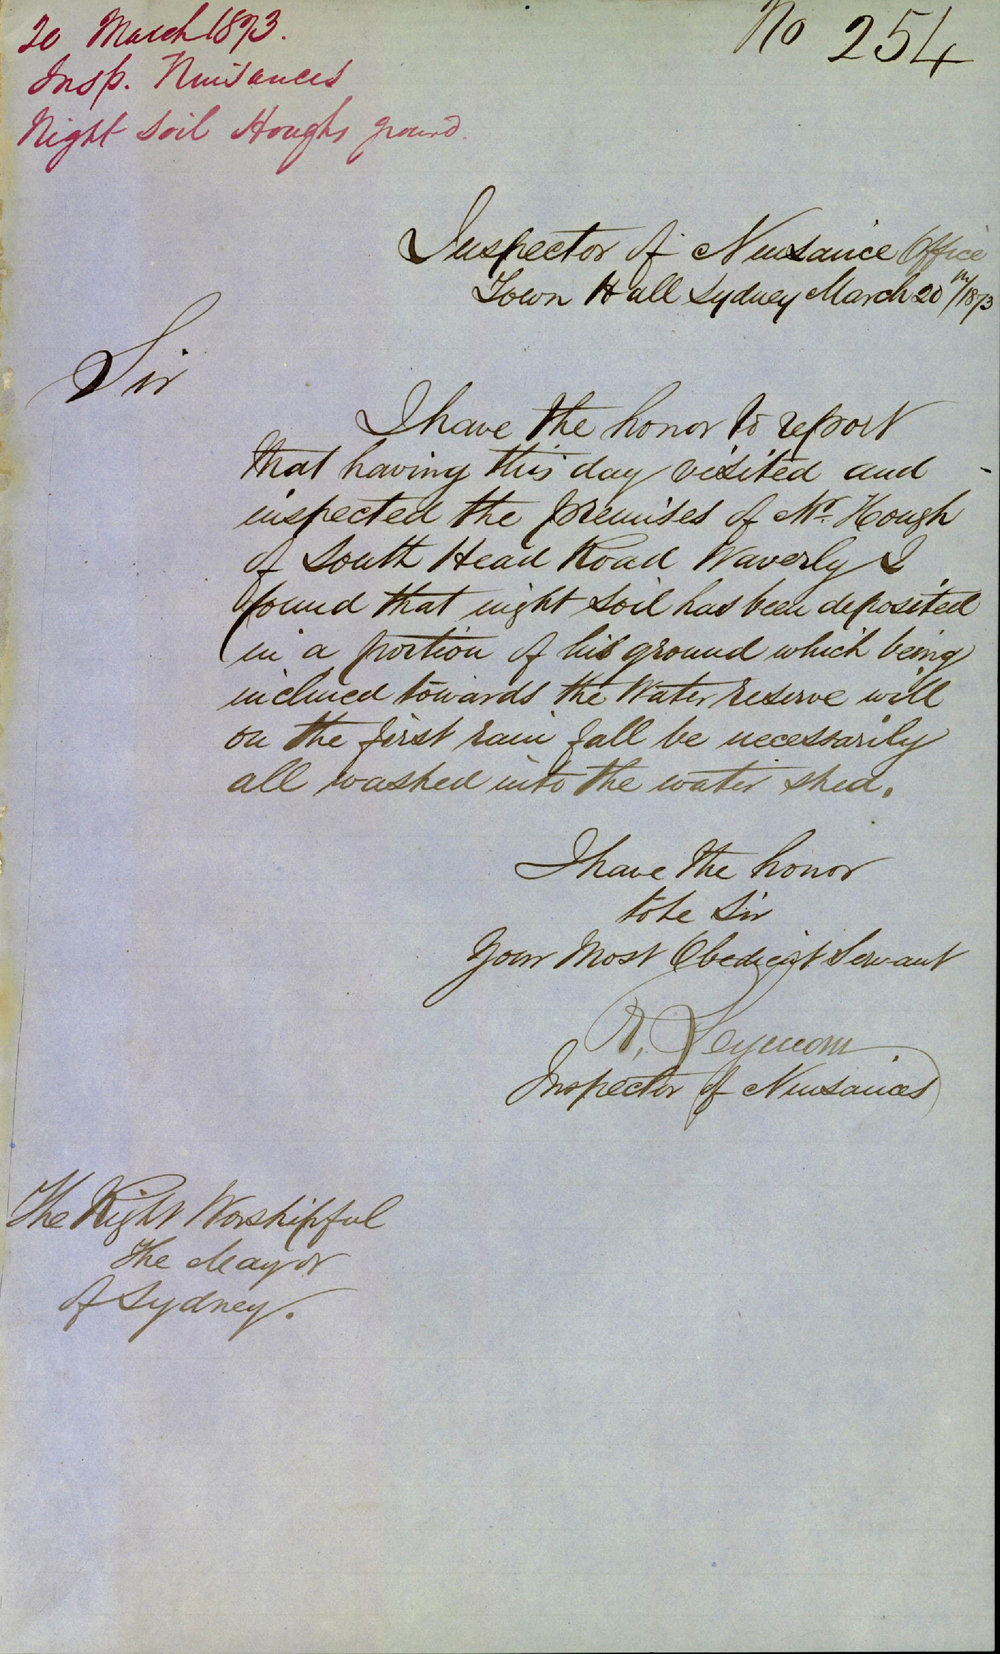 20 March 1873.
Insp. Nuisances
Night Soil Houghs ground.
No 254
Inspector of Nuisance Office
Town Hall Sydney March 20th/1873
Sir
I have the honor to report
that having this day visited and
inspected the premises of Mr. Hough
of South Head Road Waverly I
found that night soil has been deposited
in a portion of his ground which being
inclined towards the Water reserve will
on the first rain fall be necessarily
all washed into the water shed.
I have the honor
to be Sir
Your Most Obedient Servant
R. Seymour
Inspector of Nuisances
The Right Worshipful
The Mayor
of Sydney.